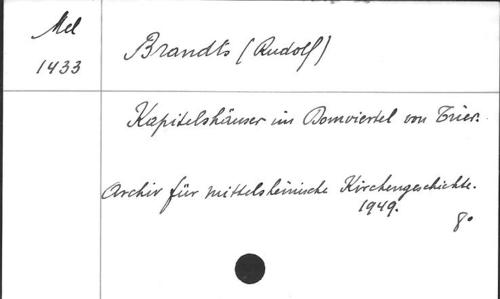 Mel
1433
Brandts (Rudolf)
Kapitelshäuser im Domviertel von Trier.
Archiv für mittelrheinische Kirchengeschichte.
1949.
8°